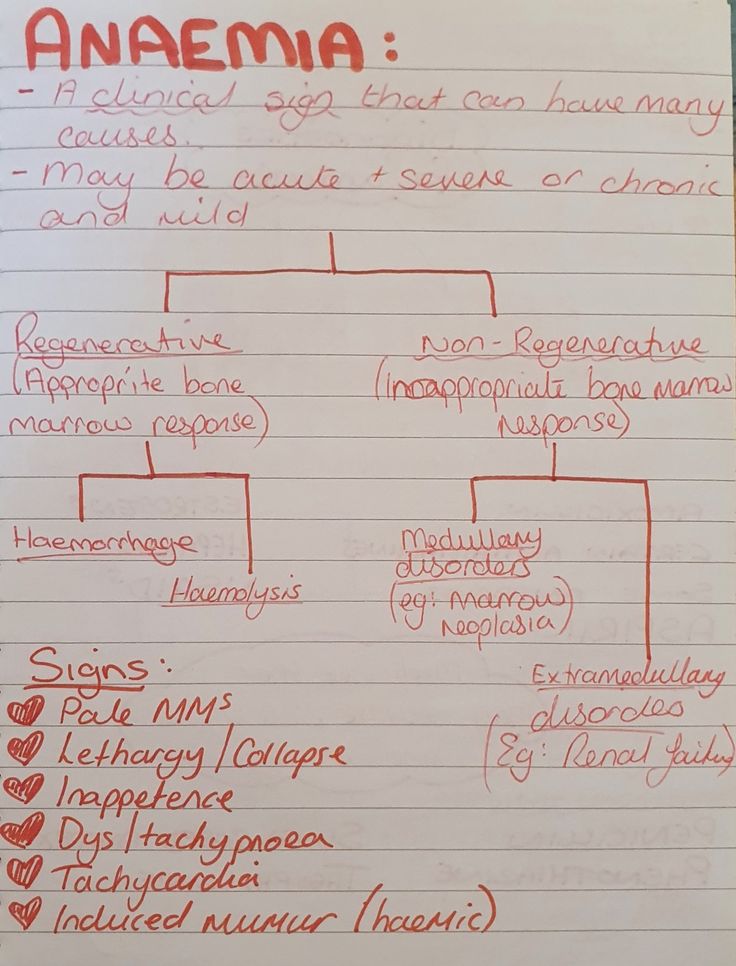 ANAEMIA:
- A clinical sign that can have many
causes.
- May be acute + severe or chronic
and mild
Regenerative
(Approprite bone
marrow response)
Non-Regenerative
(Innappropriate bone marrow
response)
Haemorrhage
Haemolysis
Medullary
disorders
(eg: marrow
neoplasia)
Extramedullary
disordes
(Eg: Renal failure)
Signs:
Pale MMs
Lethargy/Collapse
Inappetence
Dys/tachypnoea
Tachycardia
Induced mumur (haemic)